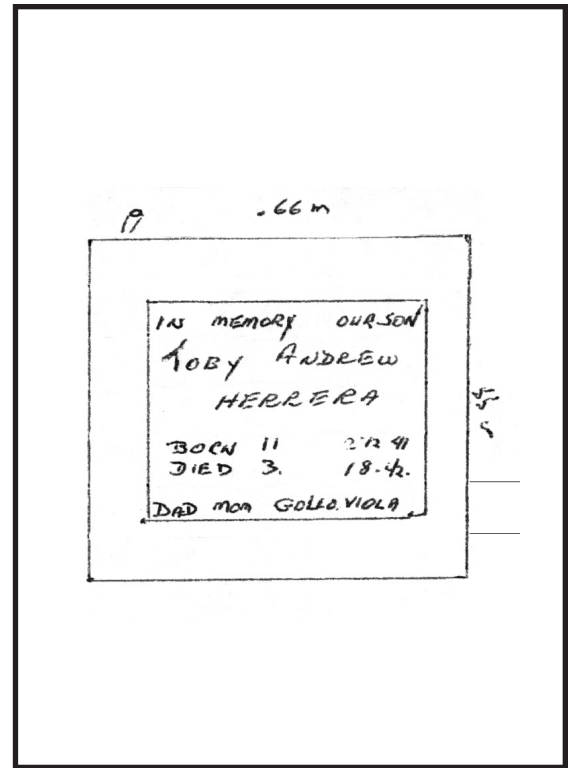 .66 m
IN MEMORY OUR SON
TOBY ANDREW
HERRERA
BORN 11
DIED 3. 18.42.
DAD MOM GOLLO.VIOLA